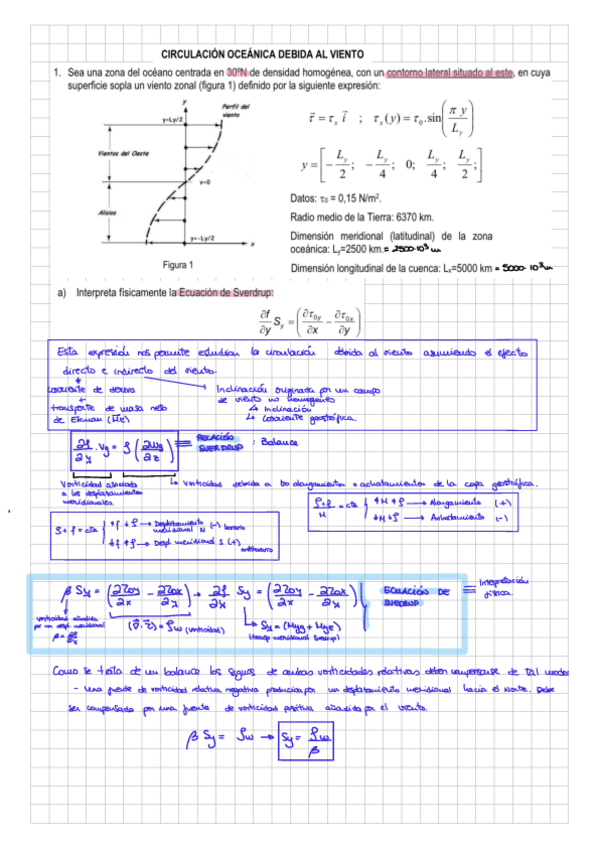 CIRCULACIÓN OCEÁNICA DEBIDA AL VIENTO
1. Sea una zona del océano centrada en 30ºN de densidad homogénea, con un contorno lateral situado al este, en cuya
superficie sopla un viento zonal (figura 1) definido por la siguiente expresión:
y
y=Ly/2
Perfil del
viento
Vientos del Oeste
y=0
Alisios
y=-Ly/2
x
Figura 1
τ⃗ = τₓ i⃗ ; τₓ(y) = τ₀.sin(π y / L_y)
y = [-L_y/2; -L_y/4; 0; L_y/4; L_y/2;]
Datos: τ0 = 0,15 N/m².
Radio medio de la Tierra: 6370 km.
Dimensión meridional (latitudinal) de la zona
oceánica: Ly=2500 km. = 2500·10³ m
Dimensión longitudinal de la cuenca: Lx=5000 km = 5000·10³ m
a) Interpreta físicamente la Ecuación de Sverdrup:
∂f/∂y S_y = (∂τ₀y/∂x - ∂τ₀x/∂y)
Esta expresión nos permite estudiar la circulación debida al viento asumiendo el efecto
directo e indirecto del viento.
corriente de deriva
+
transporte de masa neto
de Ekman (M⃗e)
Inclinación originada por un campo
de viento no homogéneo
↳ Inclinación
↳ Corriente geostrófica.
∂f/∂y · Vg = f (∂Wg/∂z) ≡ RELACIÓN SVERDRUP : Balance
Vorticidad asociada
a los desplazamientos
meridionales.
↳ Vorticidad debida a los alargamientos o achatamientos de la capa geostrófica.
ζ + f = cte
↑f ↓ζ → Desplazamiento meridional N (-) horario
↓f ↑ζ → Despl meridional S (+) antihorario
= cte
↑H ↑ζ → Alargamiento (+)
↓H ↓ζ → Achatamiento (-)
β Sy = (∂τoy/∂x - ∂τox/∂y) → ∂f/∂y Sy = (∂τoy/∂x - ∂τox/∂y) ECUACIÓN DE SVERDRUP ≡ Interpretación física
vorticidad añadida
por un despl meridional
β = ∂f/∂y
= ζw (vorticidad)
↳ Sy = (Myg + Mye)
(transp meridional Sverdrup)
Como se trata de un balance los signos de ambas vorticidades relativas deben compensarse de tal modo
- Una fuente de vorticidad relativa negativa producida por un desplazamiento meridional hacia el Norte. Debe
ser compensada por una fuente de vorticidad positiva añadida por el viento.
β Sy = ζw → Sy = ζw/β